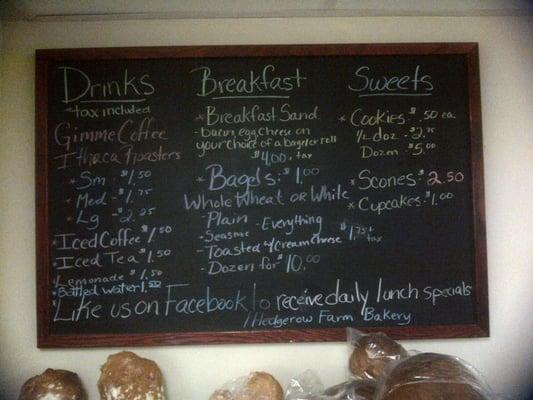 Drinks
*tax included
Gimme Coffee
Ithaca Roasters
* Sm - $1.50
* Med - $1.75
* Lg - $2.25
* Iced Coffee $1.50
* Iced Tea $1.50
* Lemonade $1.50
* Bottled water 1.00
Breakfast
* Breakfast Sand.
- bacon, egg, cheese on
your choice of a bagel or roll
$4.00 + tax
* Bagels: $1.00
Whole Wheat or White
- Plain - Everything
- Sesame
- Toasted w/ Cream cheese $1.75 + tax
- Dozen for $10.00
Sweets
* Cookies: $.50 ea
1/2 doz - $2.75
Dozen $5.00
* Scones: $2.50
* Cupcakes: $1.00
* Like us on Facebook to receive daily lunch specials
/Hedgerow Farm Bakery